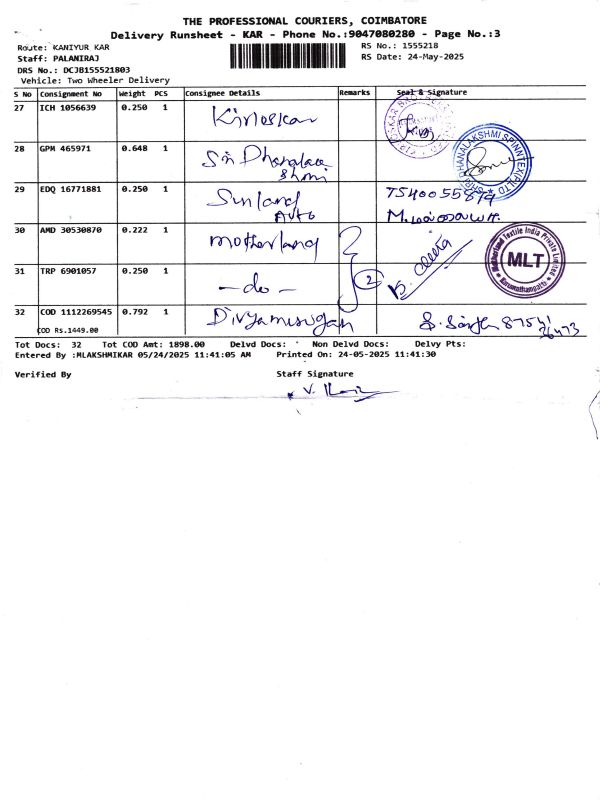 THE PROFESSIONAL COURIERS, COIMBATORE
Delivery Runsheet - KAR - Phone No.:9047080280 - Page No.:3
Route: KANIYUR KAR
RS No.: 1555218
Staff: PALANIRAJ
RS Date: 24-May-2025
DRS No.: DCJB155521803
Vehicle: Two Wheeler Delivery
S No Consignment No Weight PCS Consignee Details Remarks Seal & Signature
27 ICH 1056639 0.250 1 Kirloskar
28 GPM 465971 0.648 1 Sri Dhanalaa
29 EDQ 16771881 0.250 1 Sunland
Auto
30 AMD 30530870 0.222 1 motherland
31 TRP 6901057 0.250 1 -do- 2
MLT
32 COD 1112269545 0.792 1 Divyamurugan
COD Rs.1449.00
Tot Docs: 32 Tot COD Amt: 1898.00 Delvd Docs: Non Delvd Docs: Delvy Pts:
Entered By :MLAKSHMIKAR 05/24/2025 11:41:05 AM Printed On: 24-05-2025 11:41:30
Verified By Staff Signature